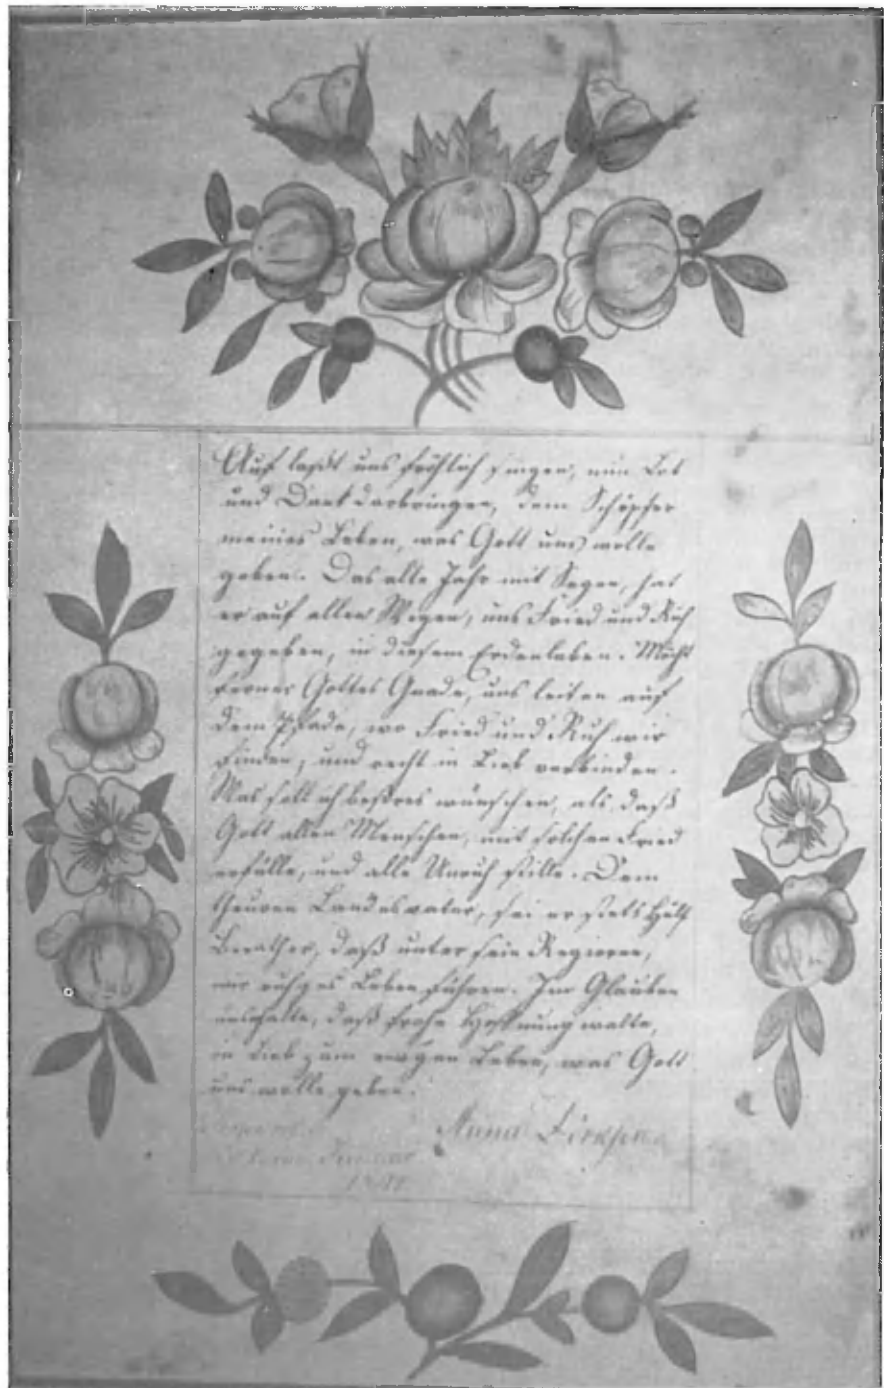 Auf laßt uns fröhlich singen, nun Lob
und Dank darbringen, dem Schöpfer
meines Leben, was Gott uns wolle
geben. Das alte Jahr mit Segen, hat
er auf allen Wegen, uns Fried und Ruh
gegeben, in diesem Erdenleben. Möcht
ferner Gottes Gnade, uns leiten auf
dem Pfade, wo Fried und Ruh wir
finden, und recht in Lieb verbinden.
Was soll ich beßres wünschen, als daß
Gott allen Menschen, mit solchen Fried
erfülle, und alle Unruh stille. Dem
theuren Landesvater, sei er stets Hülf
Berather, daß unter sein Regieren,
wir ruhges Leben führen. Im Glauben
uns halte, daß frohe Hoffnung walte,
in Lieb zum ewgen Leben, was Gott
uns wolle geben.
Anna Dirksen